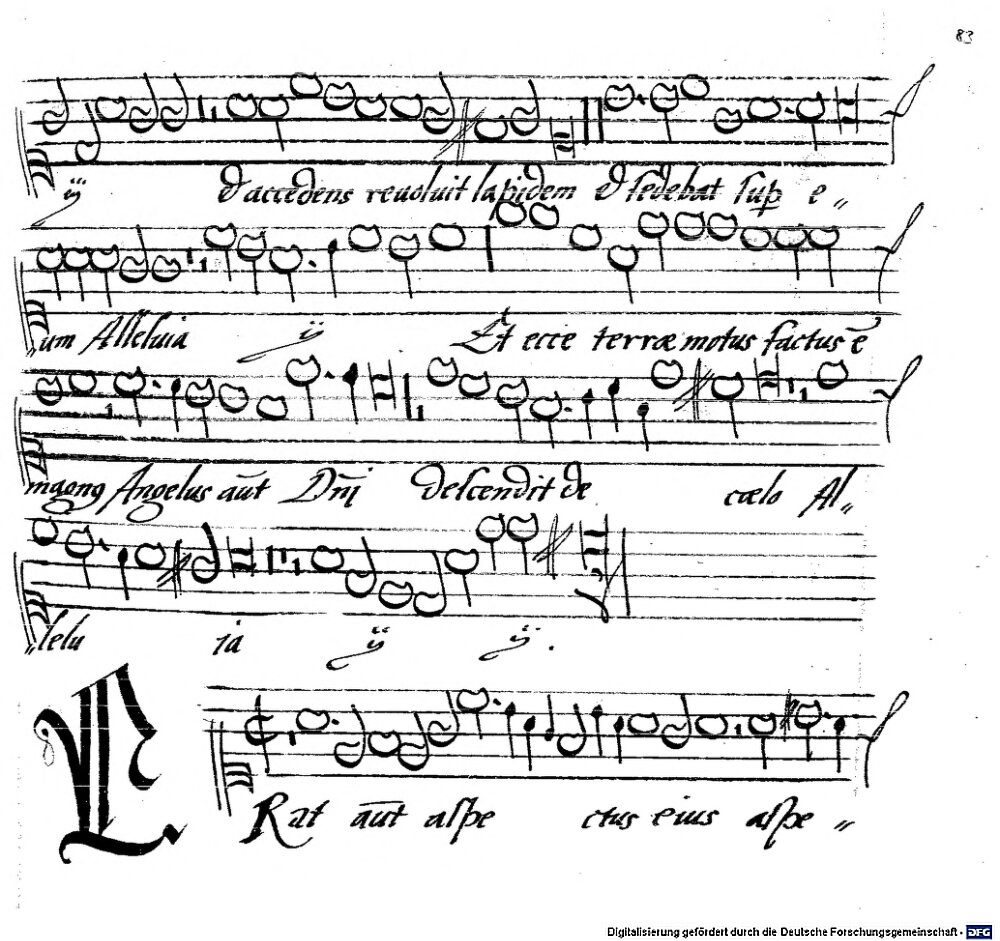 83
ij & accedens reuoluit lapidem & sedebat sup̱ e„
„um Alleluia ij Et ecce terræ motus factus ē
magnꝰ Angelus aūt Dn̄i descendit de cœlo Al„
„lelu ia ij ij.
ERat aūt aspe ctus eius aspe„
Digitalisierung gefördert durch die Deutsche Forschungsgemeinschaft - DFG